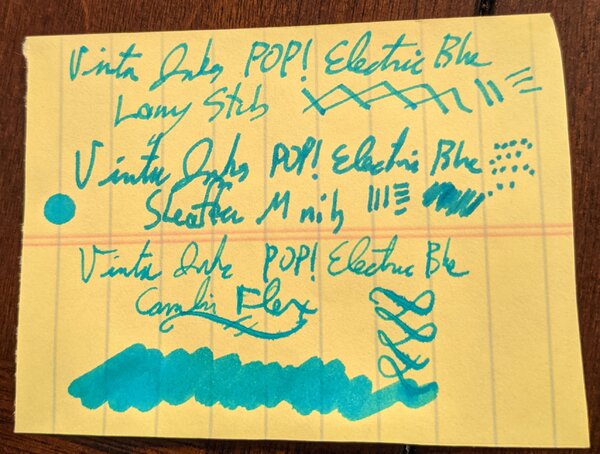 Vinta Inks POP! Electric Blue
Lamy Stub
Vinta Inks POP! Electric Blue
Sheaffer M nib
Vinta Inks POP! Electric Blue
Flex